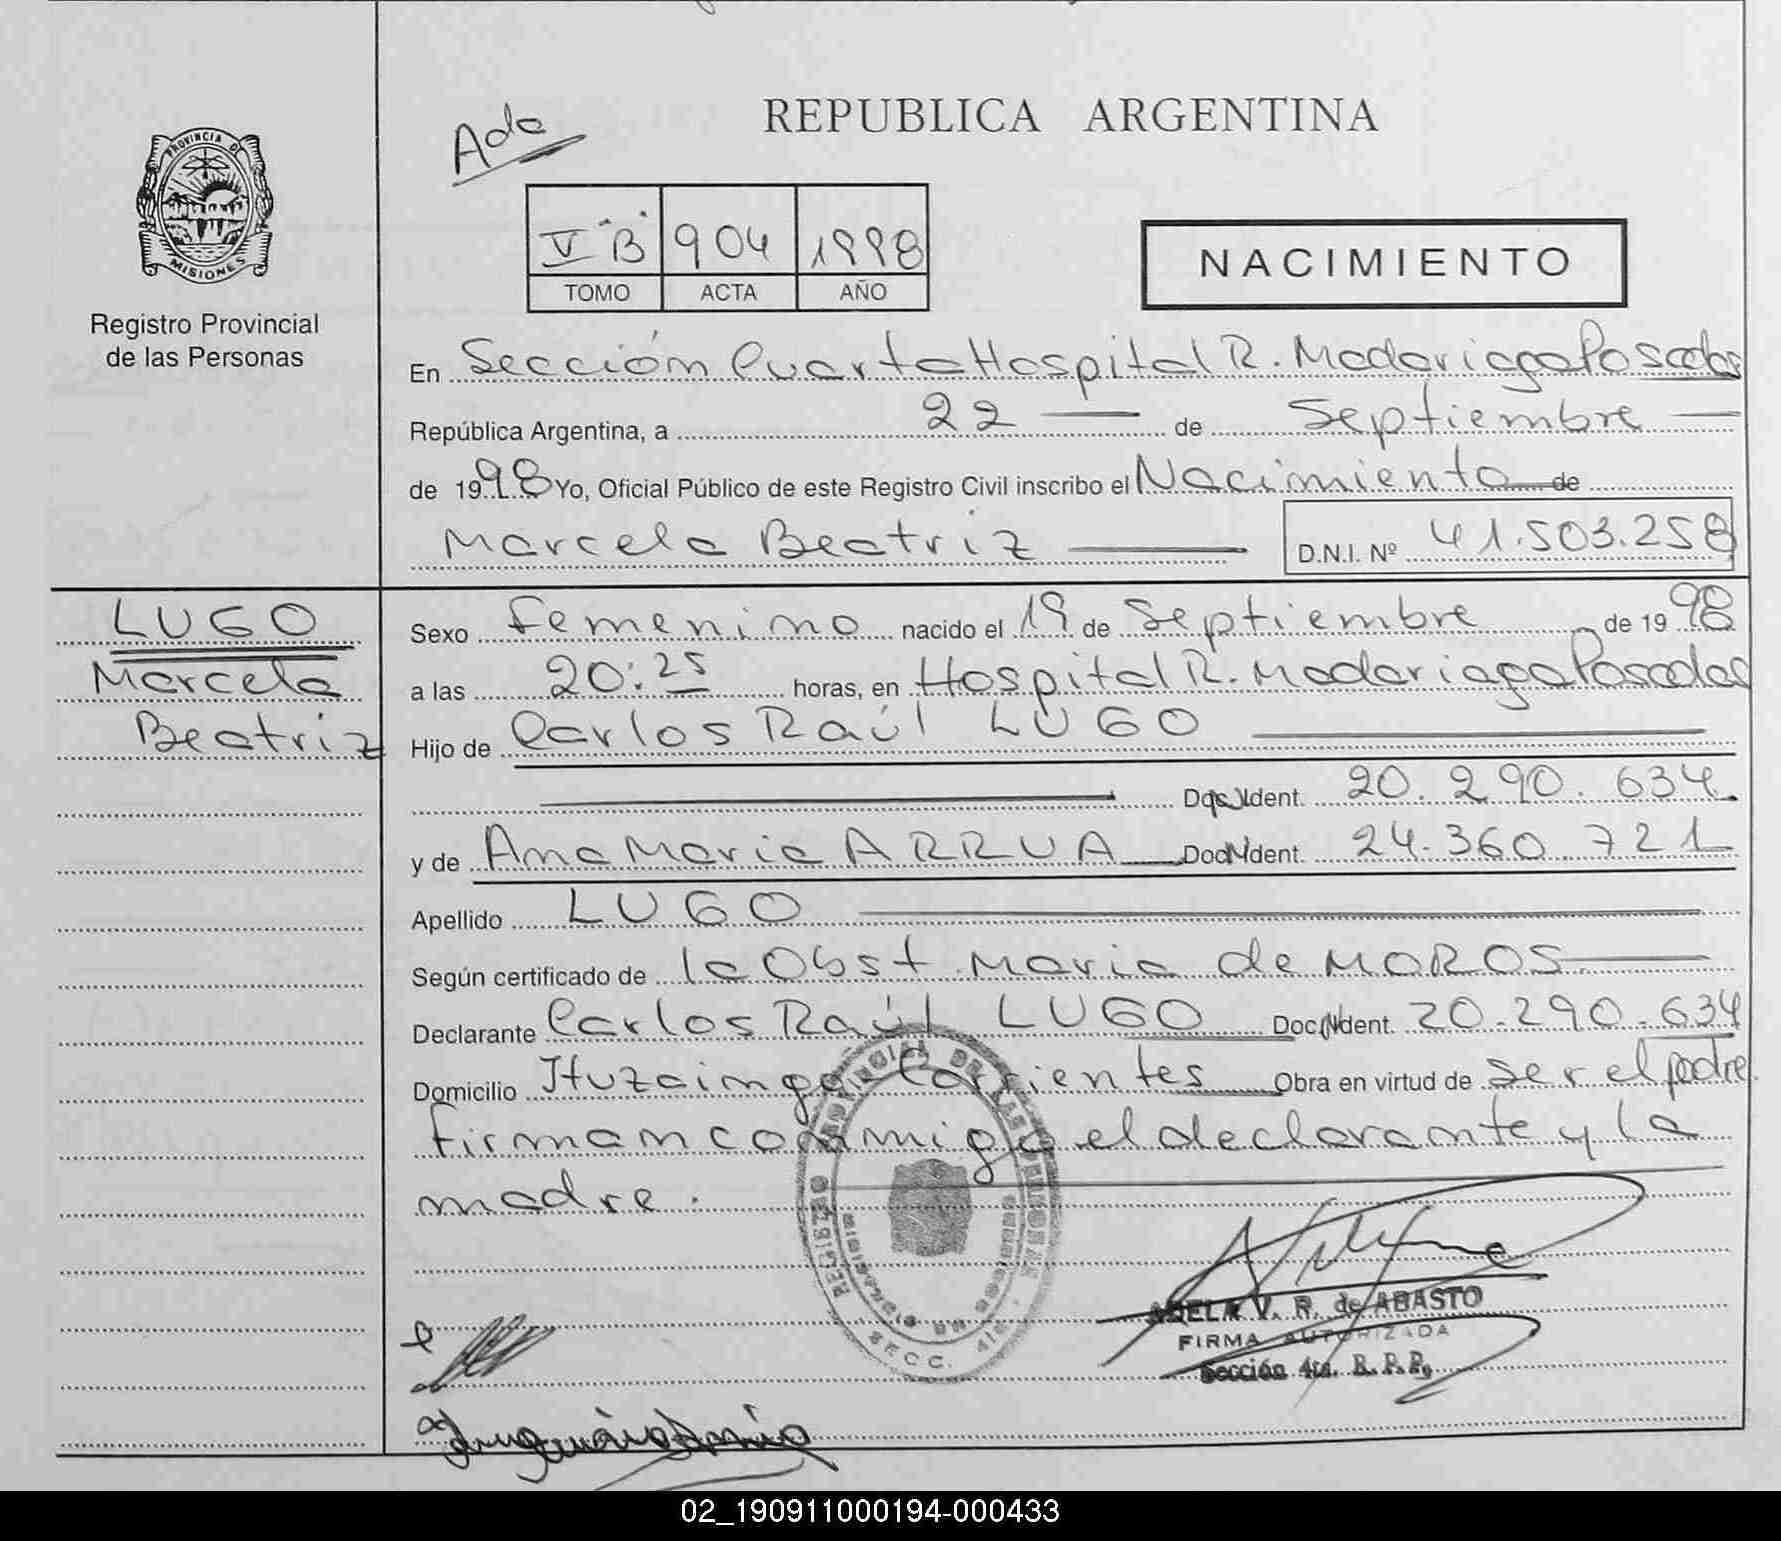 REPUBLICA ARGENTINA
Ada
PROVINCIA DE
MISIONES
Registro Provincial
de las Personas
V "B" 904 1998
TOMO ACTA AÑO
NACIMIENTO
En Sección Cuarta Hospital R. Madariaga Posadas
República Argentina, a 22 de Septiembre
de 1998 Yo, Oficial Público de este Registro Civil inscribo el Nacimiento de
Marcela Beatriz D.N.I. Nº 41.503.258
LUGO
Marcela
Beatriz
Sexo femenino nacido el 19 de Septiembre de 1998
a las 20:25 horas, en Hospital R. Madariaga Posadas
Hijo de Carlos Raúl LUGO
Doc. Ident. 20.290.634
y de Ana Maria ARRUA Doc. Ident. 24.360.721
Apellido LUGO
Según certificado de la Obst. Maria de MOROS
Declarante Carlos Raúl LUGO Doc. Ident. 20.290.634
Domicilio Ituzaingó Corrientes Obra en virtud de ser el padre
firman conmigo el declarante y la
madre.
REGISTRO PROVINCIAL DE LAS PERSONAS
SECC. 4ta.
ADELA V. R. de ABASTO
FIRMA AUTORIZADA
Sección 4ta. R. P. P.
02_190911000194-000433